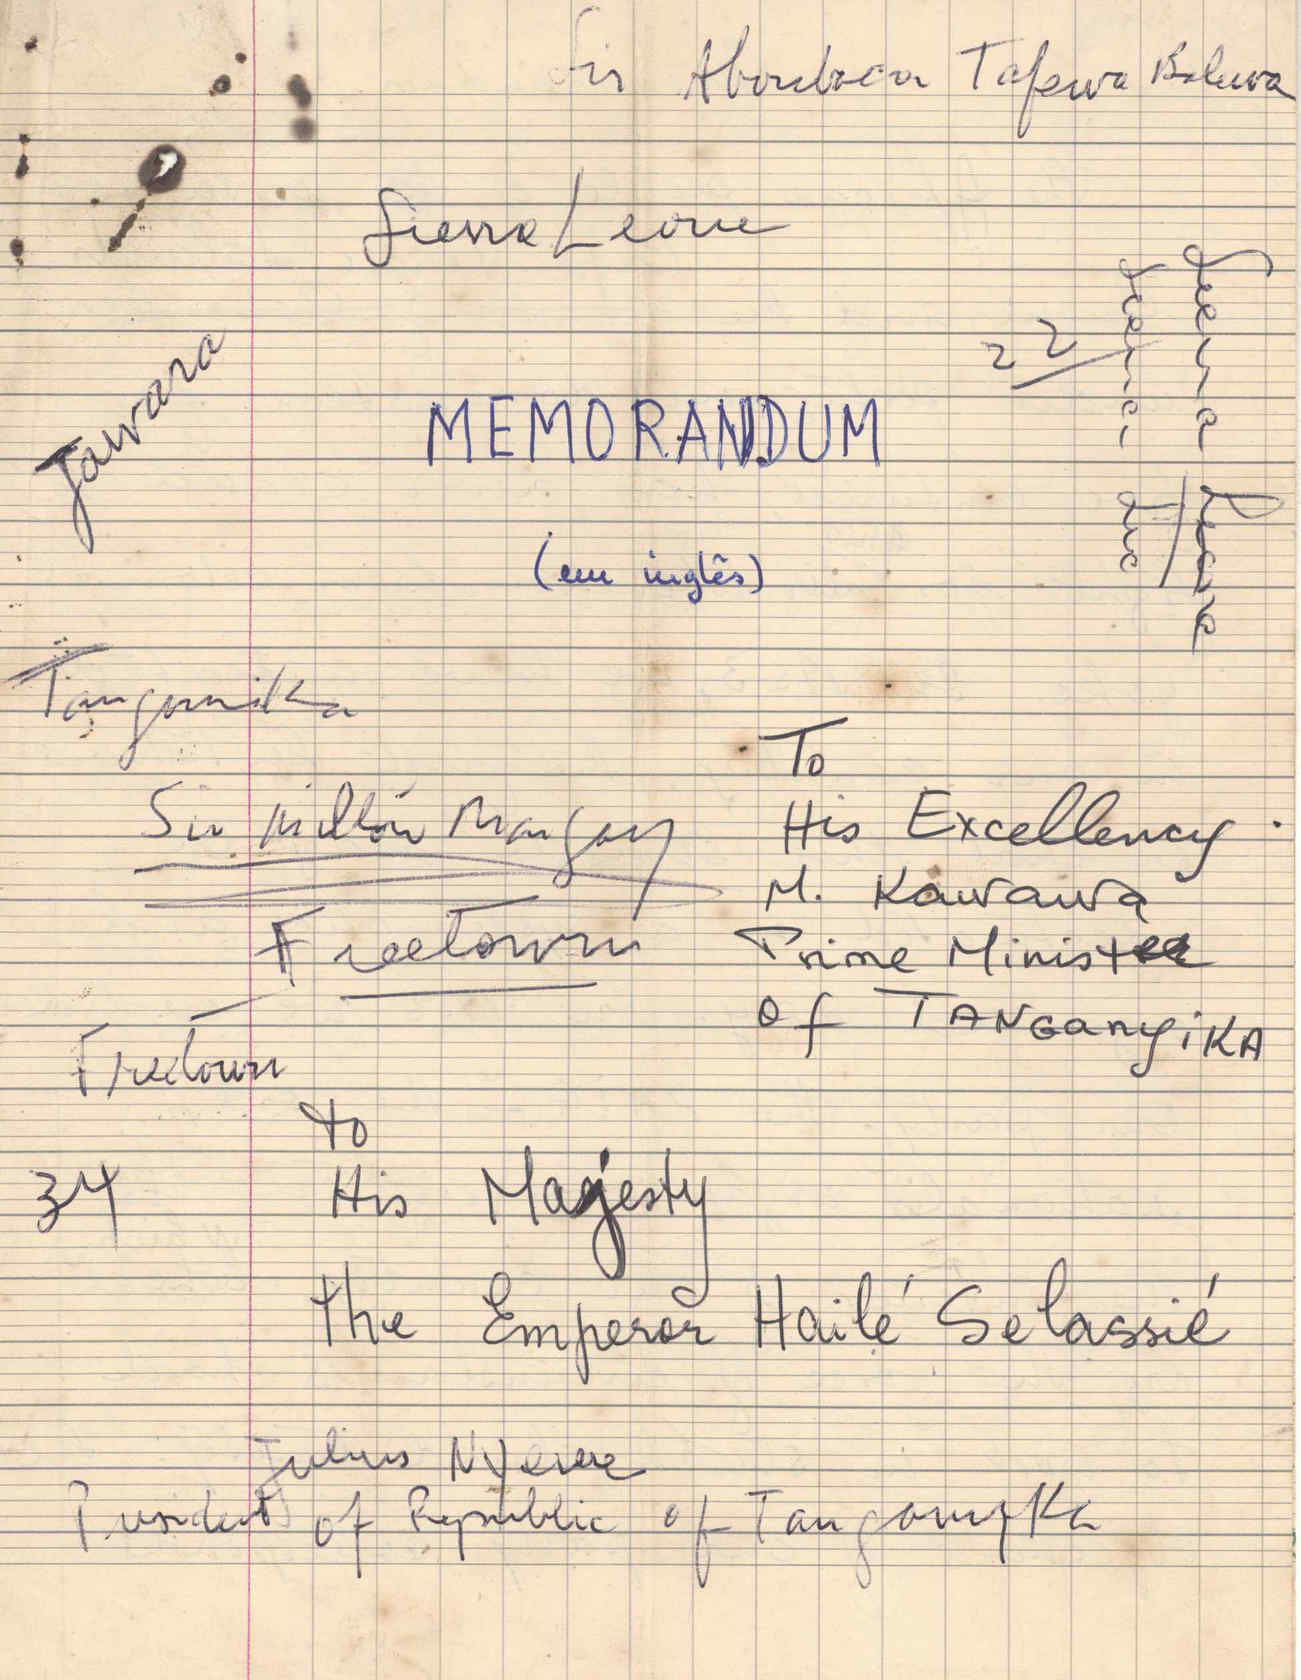 Sir Aboubacar Tafewa Balewa
Sierra Leone
22
Sierra Leone
Jawara
MEMORANDUM
(em inglês)
Tanganika
Sir Milton Margay
Freetown
Freetown
To
His Excellency
M. Kawawa
Prime Minister
of TANGanyiKA
to
34
His Magesty
the Emperor Hailé Selassié
Julius Nyerere
President of Republic of Tanganyka